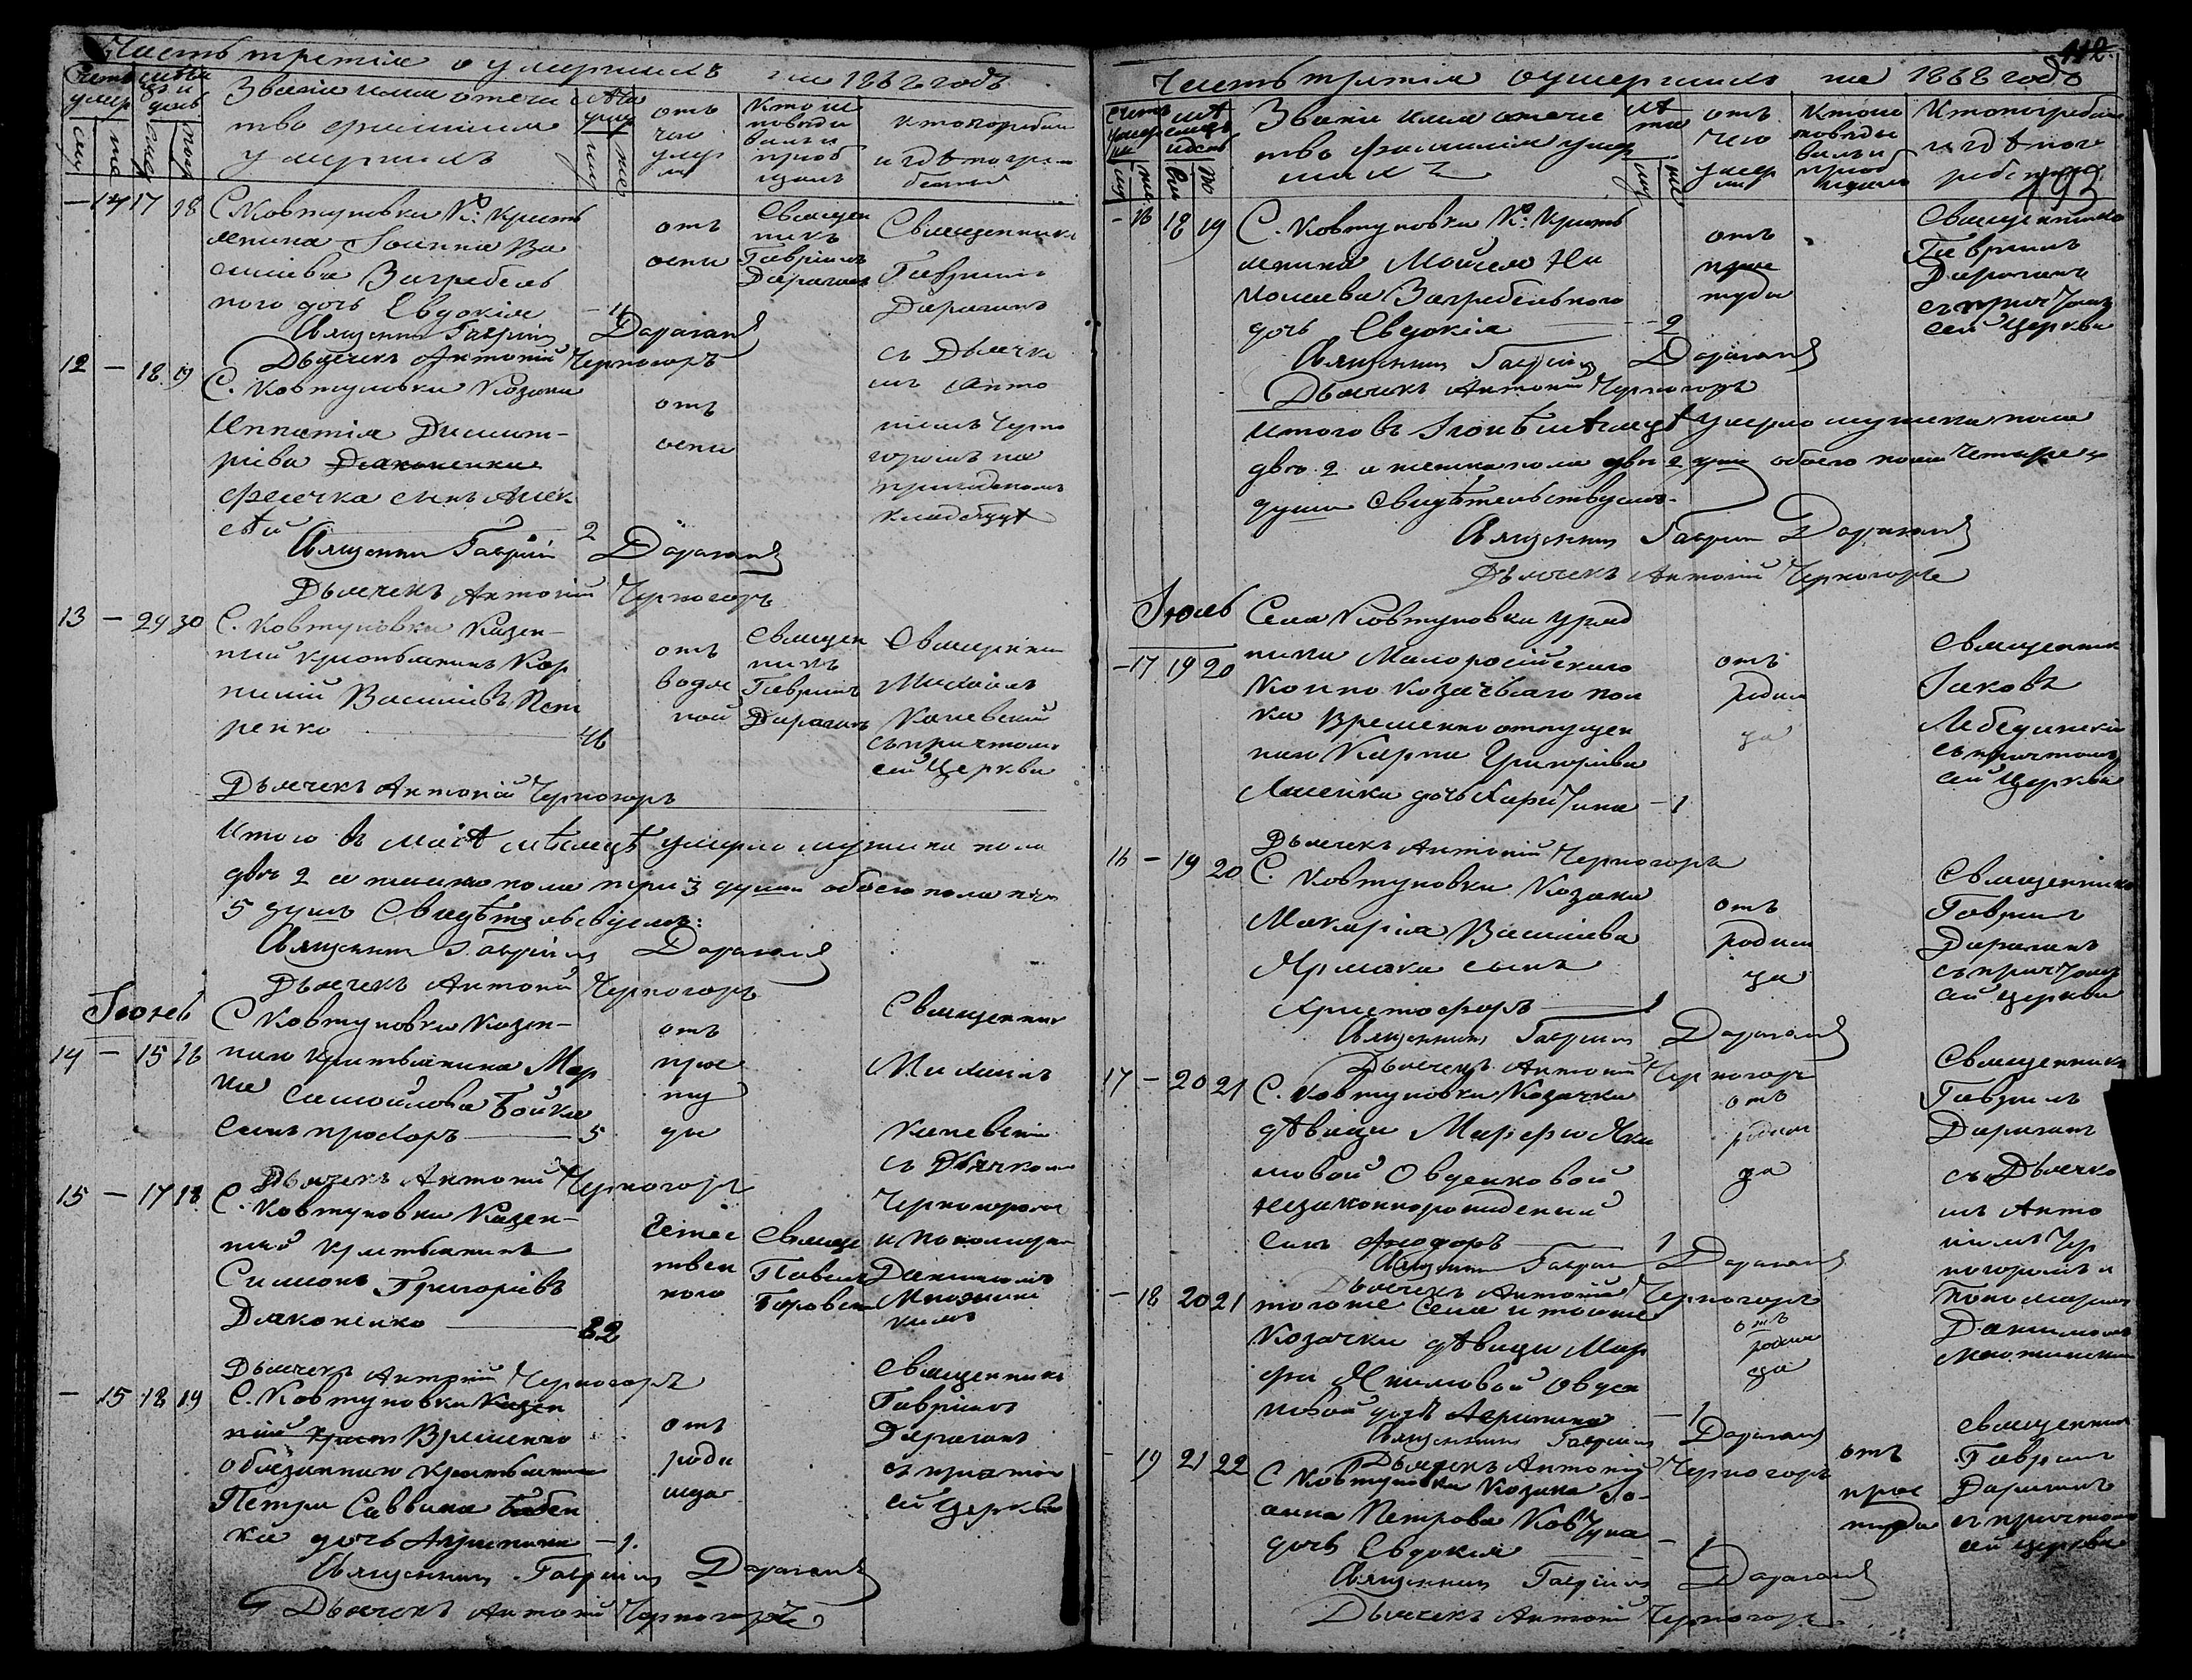 Часть третія о умершихъ на 1862 годъ
Званіе имя отече
ство фамилія
умершихъ
Кто ис
повѣды
валъ и
пріоб
щалъ
отъ
чего
умер
ли
кто погребалъ
и гдѣ погре
бены
14 17 18
С. Ковтуновки
Іоанна Ва
силіева Загребель
ного дочь Евдокія 4
отъ
оспи
Священ
никъ
Гавріилъ
Дараганъ
Священникъ
Гавріилъ
Дараганъ
Священникъ Гавріилъ Дараганъ
Дьячекъ Антоній Черногоръ
12 — 18 19
С. Ковтуновки Козака
Ипатія Димит-
ріева
сынъ Алек
сѣй 2
отъ
оспи
съ Дьячко
мъ Анто
ніемъ Черно
горомъ на
приходскомъ
кладбищѣ
Священникъ Гавріилъ Дараганъ
Дьячекъ Антоній Черногоръ
13 — 29 30
С. Ковтуновки Казен-
ный крестьянинъ Кор
нилій Василіевъ Пет
ренко 46
отъ
водя
ной
Священ
никъ
Гавріилъ
Дараганъ
Священникъ
Михаилъ
Каневскій
съ причтомъ
сей Церкви
Дьячекъ Антоній Черногоръ
Итого въ маѣ мѣсяцѣ умерло мужска пола
двѣ 2 а женска пола три 3 души обоего пола
5 душъ Свидѣтельствуемъ:
Священникъ Гавріилъ Дараганъ
Дьячекъ Антоній Черногоръ
Іюнь
14 — 15 16
С. Ковтуновки Казен-
наго крестьянина Мар
ка Самойлова Бойка
сынъ Прохоръ 5
отъ
прос
ту
ды
Священникъ
Михаилъ
Каневскій
съ Дьячкомъ
Черногоромъ
и пономаремъ
Даниломъ
15 — 17 18
С. Ковтуновки Казен-
ный крестьянинъ
Симеонъ Григоріевъ
Дяконенко 82
естес
твен
ного
Священ
Павелъ
Дьячекъ Антоній Черногоръ
— 15 18 19
С. Ковтуновки Казен
ный крест Временно
обязанного крестьянина
Петра Саввина Бабен
ка дочь Агрипина — 1.
отъ
роди
мца
Священникъ
Гавріилъ
Дараганъ
съ причтомъ
сей Церкви
Священникъ Гавріилъ Дараганъ
Дьячекъ Антоній Черногоръ
112
193
Часть третія о умершихъ на 1862 годъ
Званіе имя отече
ство фамилія умер
шихъ
лѣ
та
отъ
чего
умер
ли
Кто ис
повѣды
валъ и
пріоб
щалъ
Кто погребалъ
и гдѣ пог
ребены
— 16 18 19
С. Ковтуновки
Моисея Ни
колаева Загребельного
дочь Евдокія — 2
отъ
прос
туды
Священникъ
Гавріилъ
Дараганъ
съ причтомъ
сей Церкви
Священникъ Гавріилъ Дараганъ
Дьячекъ Антоній Черногоръ
Итого въ Іюнѣ мѣсяцѣ умерло мужска пола
двѣ 2 а женска пола двѣ 2 души обоего пола четыре 4
души Свидѣтельствуемъ.
Священникъ Гавріилъ Дараганъ
Дьячекъ Антоній Черногоръ
Іюль
— 17 19 20
Села Ковтуновки уряд
ника Малоросійскаго
Конно козачьяго пол
ка временно отпущен
наго Карпа Григоріева
дочь Харитина — 1
отъ
родим
ца
Священникъ
Іаковъ
Лебединскій
съ причтомъ
сей Церкви
Дьячекъ Антоній Черногоръ
16 — 19 20
С. Ковтуновки Козака
Макарія Василіева
Ярмака сынъ
Христофоръ 1
отъ
родим
ца
Священникъ
Гавріилъ
Дараганъ
съ причтомъ
сей Церкви
Священникъ Гавріилъ Дараганъ
Дьячекъ Антоній Черногоръ
17 — 20 21
С. Ковтуновки Козачки
дѣвици Марфи Яки
мовой Овденковой
незаконнорожденный
сынъ 1
отъ
родим
ца
Священникъ
Гавріилъ
Дараганъ
съ Дьячко
мъ Анто
ніемъ Чер
ногоромъ и
пономаремъ
Даниломъ
Священникъ Гавріилъ Дараганъ
Дьячекъ Антоній Черногоръ
— 18 20 21
того же Села и тойже
Козачки дѣвици Мар
фи Якимовой Овден
ковой дочь Агрипина — 1
отъ
родим
ца
Священникъ Гавріилъ Дараганъ
Дьячекъ Антоній Черногоръ
— 19 21 22
С Ковтуновки Козака Іо-
анна Петрова Ковтуна
дочь Евдокія — 1
отъ
прос
туды
Священникъ
Гавріилъ
Дараганъ
съ причтомъ
сей Церкви
Священникъ Гавріилъ Дараганъ
Дьячекъ Антоній Черногоръ